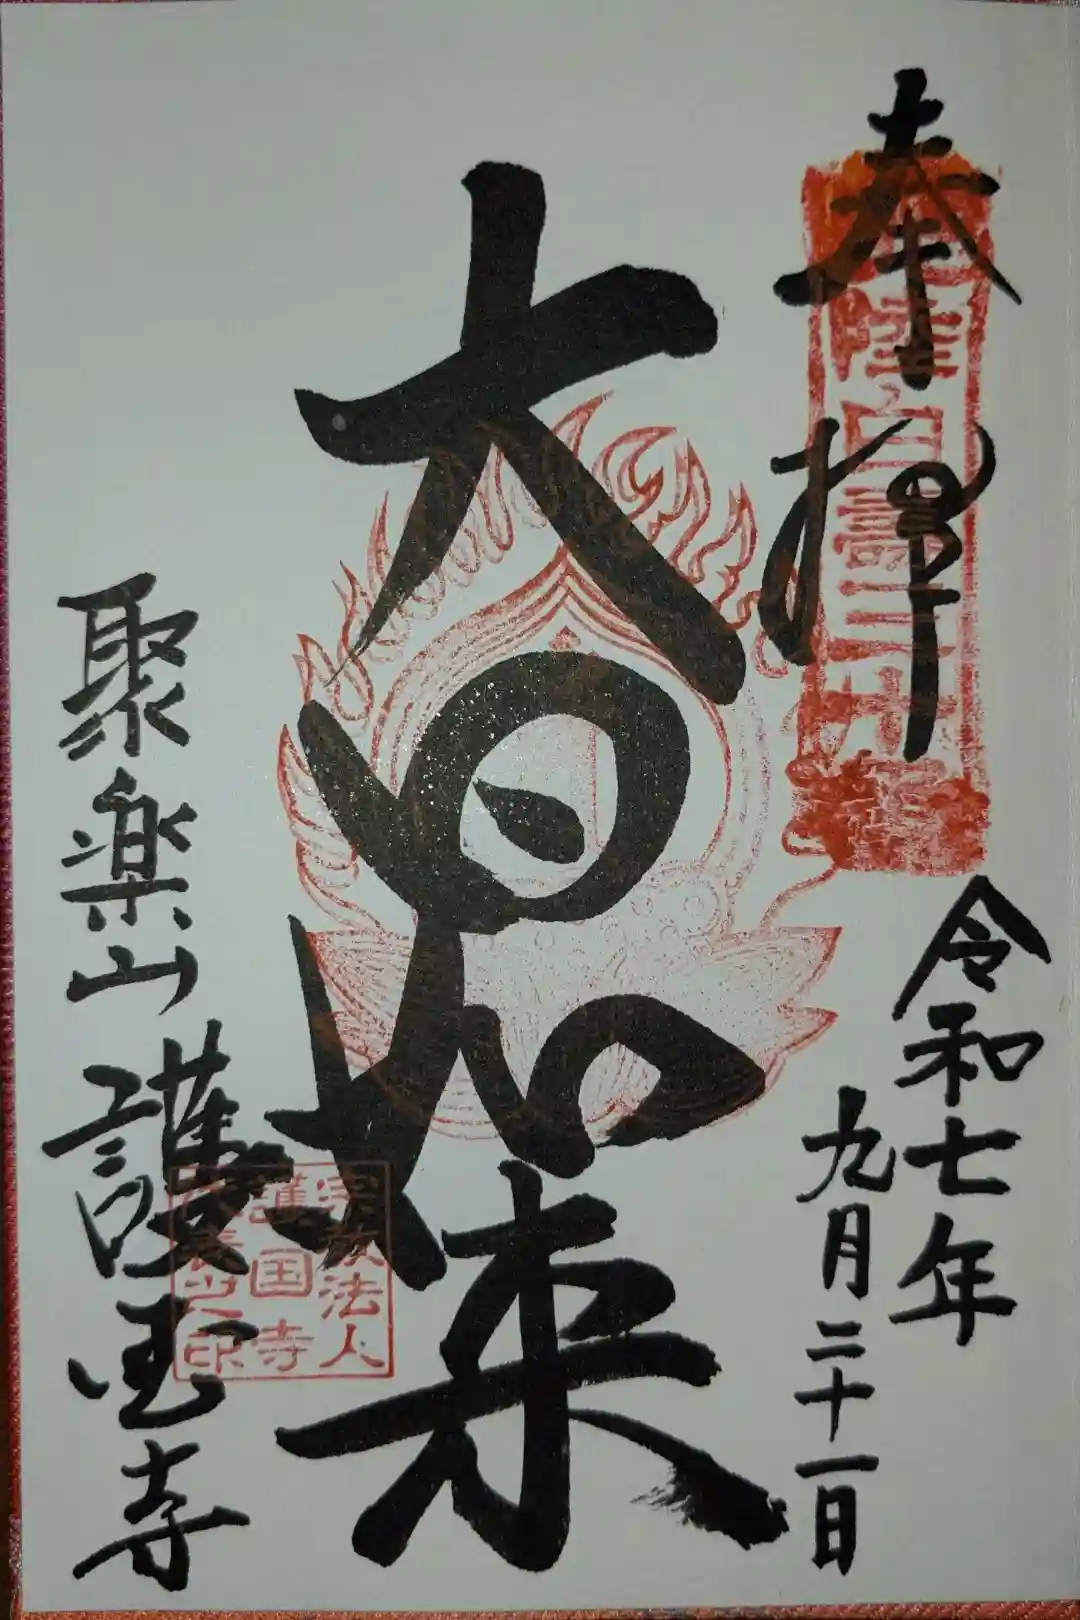 奉拝
令和七年
九月二十一日
大日如来
聚楽山 護国寺
宗教法人
護国寺
代表役員之印